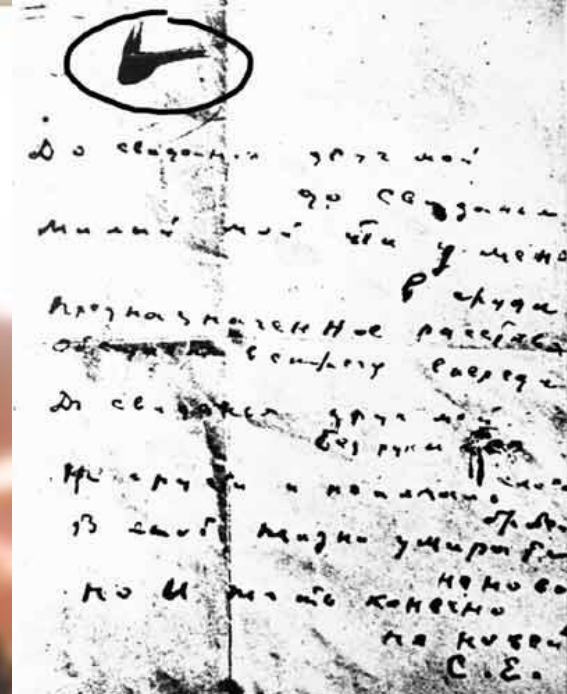 До свиданья друг мой
до свиданья
Милый мой ты у меня
в груди
Предназначенное расстава
Обещает встречу впереди
До свиданья друг мой
без руки
слова
Не грусти и
В этой жизни умирать
не но
но и жить конечно
не новей
С. Е.